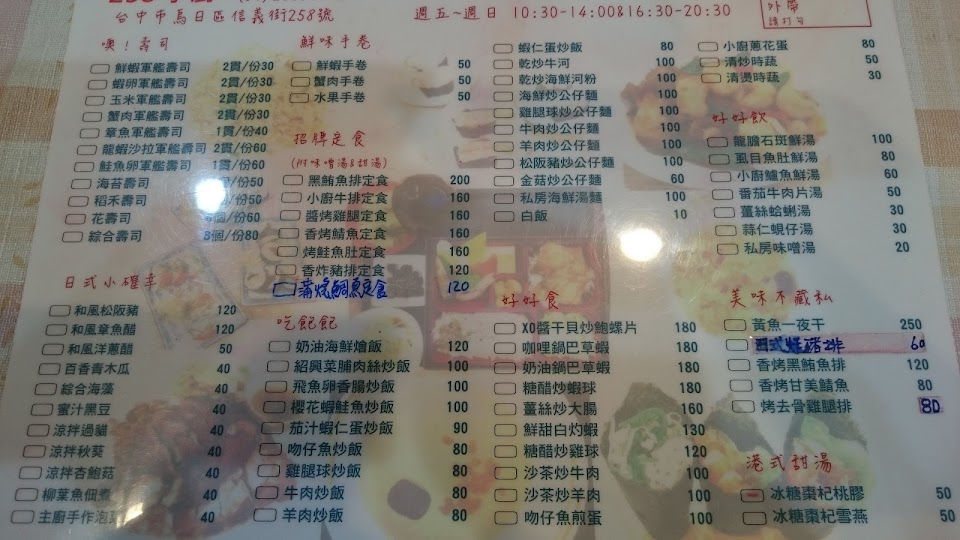 台中市烏日區信義街258號
週五~週日 10:30-14:00&16:30-20:30
外帶
請打勾
噢!壽司
鮮蝦軍艦壽司 2貫/份30
蝦卵軍艦壽司 2貫/份30
玉米軍艦壽司 2貫/份30
蟹肉軍艦壽司 2貫/份30
章魚軍艦壽司 1貫/份40
龍蝦沙拉軍艦壽司 2貫/份60
鮭魚卵軍艦壽司 1貫/份60
海苔壽司 個/份50
稻禾壽司 /份50
花壽司 個/份60
綜合壽司 8個/份80
日式小確幸
和風松阪豬 120
和風章魚醋 120
和風洋蔥醋 50
百香青木瓜 40
綜合海藻 40
蜜汁黑豆 40
涼拌過貓 40
涼拌秋葵 40
涼拌杏鮑菇 40
柳葉魚佃煮 40
主廚手作泡菜 40
鮮味手卷
鮮蝦手卷 50
蟹肉手卷 50
水果手卷 50
招牌定食
(附味噌湯&甜湯)
黑鮪魚排定食 200
小廚牛排定食 160
醬烤雞腿定食 160
香烤鯖魚定食 160
烤鮭魚肚定食 160
香炸豬排定食 120
蒲燒鯛魚定食 120
吃飽飽
奶油海鮮燴飯 120
紹興菜脯肉絲炒飯 100
飛魚卵香腸炒飯 100
櫻花蝦鮭魚炒飯 100
茄汁蝦仁蛋炒飯 90
吻仔魚炒飯 80
雞腿球炒飯 80
牛肉炒飯 80
羊肉炒飯 80
蝦仁蛋炒飯 80
乾炒牛河 100
乾炒海鮮河粉 100
海鮮炒公仔麵 100
雞腿球炒公仔麵 100
牛肉炒公仔麵 100
羊肉炒公仔麵 100
松阪豬炒公仔麵 100
金菇炒公仔麵 60
私房海鮮湯麵 100
白飯 10
好好食
XO醬干貝炒鮑螺片 180
咖哩鍋巴草蝦 180
奶油鍋巴草蝦 180
糖醋炒蝦球 180
薑絲炒大腸 160
鮮甜白灼蝦 130
糖醋炒雞球 120
沙茶炒牛肉 100
沙茶炒羊肉 100
吻仔魚煎蛋 100
小廚蔥花蛋 80
清炒時蔬 50
清燙時蔬 30
好好飲
龍膽石斑鮮湯 100
虱目魚肚鮮湯 80
小廚鱸魚鮮湯 60
番茄牛肉片湯 50
薑絲蛤蜊湯 30
蒜仁蜆仔湯 30
私房味噌湯 20
美味不藏私
黃魚一夜干 250
日式 豬排 60
香烤黑鮪魚排 120
香烤甘美鯖魚 80
烤去骨雞腿排 80
港式甜湯
冰糖棗杞桃膠 50
冰糖棗杞雪燕 50